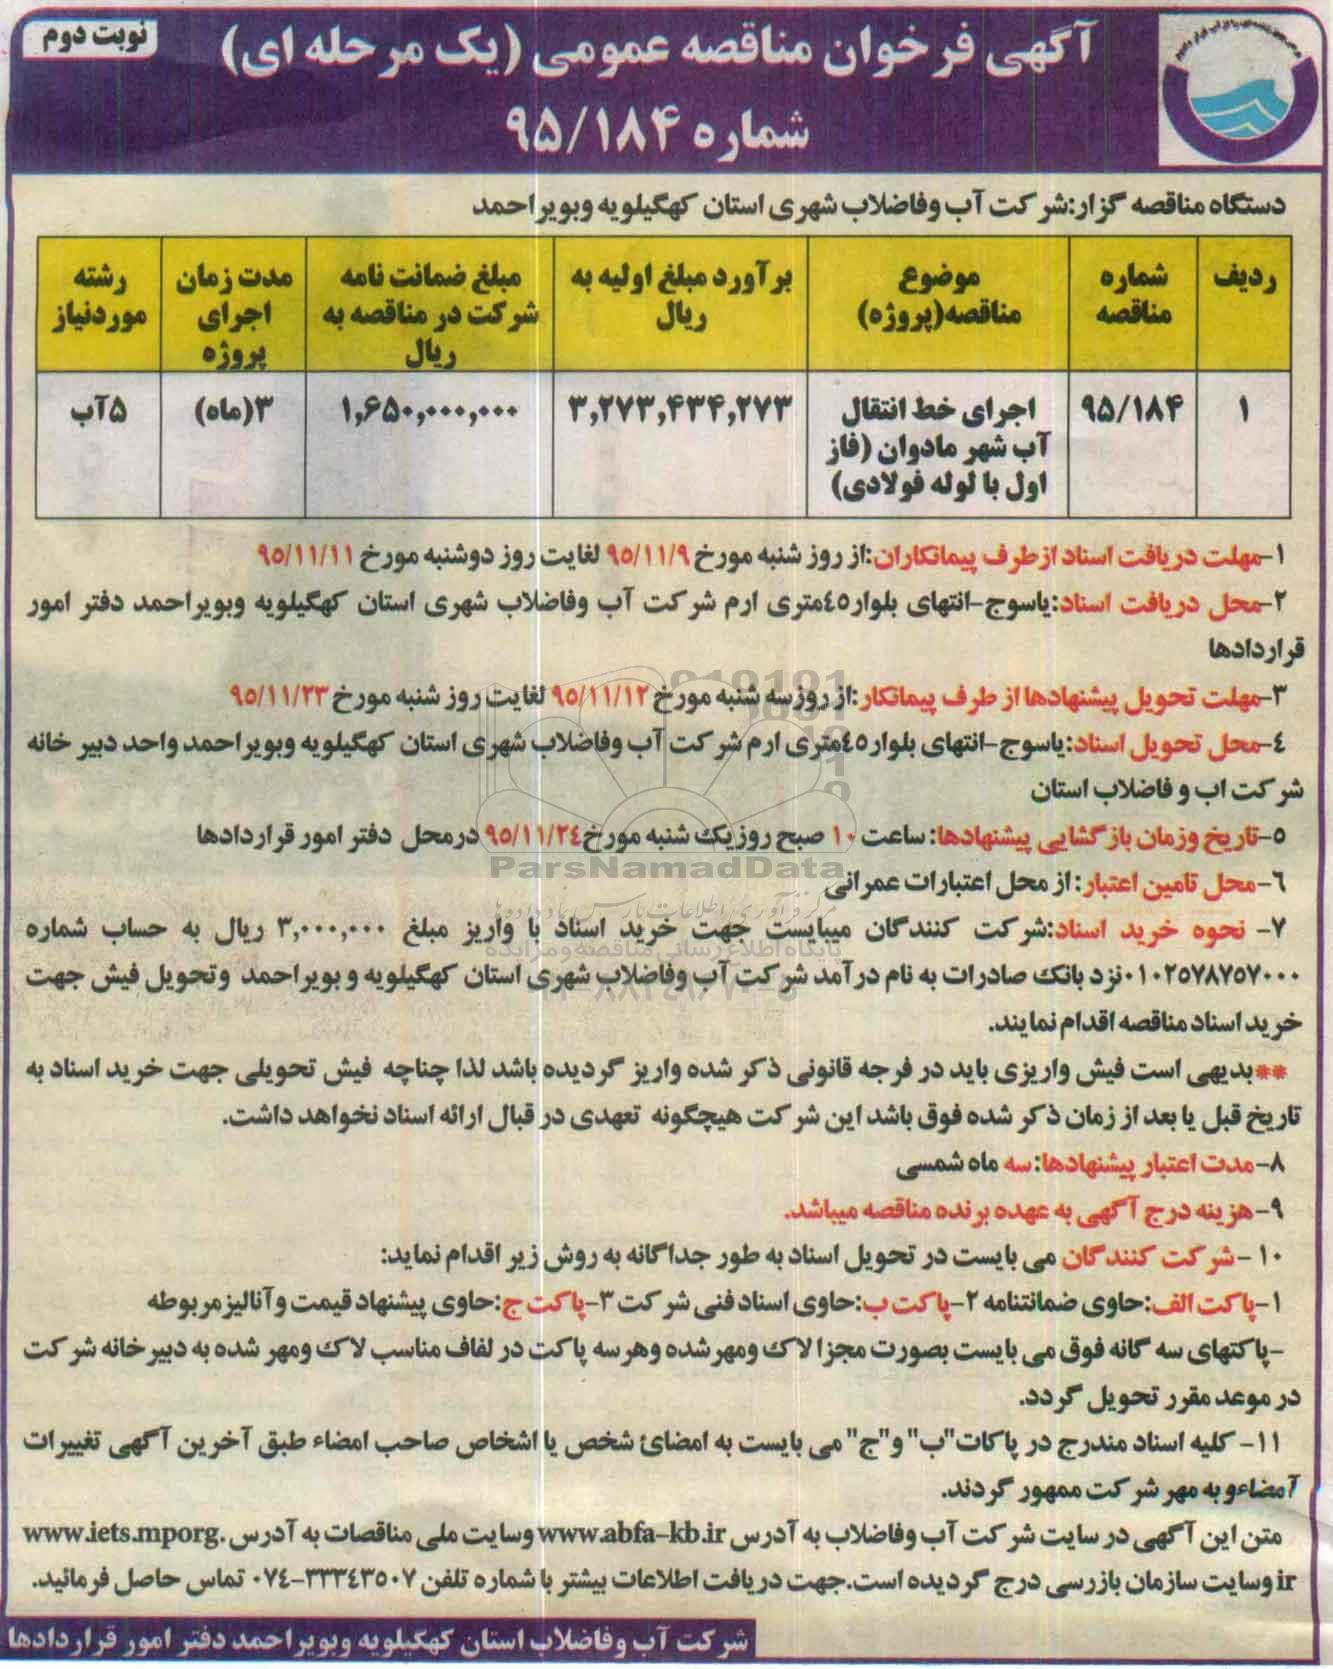 نوبت دوم
آگهی فرخوان مناقصه عمومی (یک مرحله ای)
شماره ۹۵/۱۸۴
دستگاه مناقصه گزار:شرکت آب وفاضلاب شهری استان کهگیلویه وبویراحمد
ردیف
شماره مناقصه
موضوع مناقصه(پروژه)
برآورد مبلغ اولیه به ریال
مبلغ ضمانت نامه شرکت در مناقصه به ریال
مدت زمان اجرای پروژه
رشته موردنیاز
۱
۹۵/۱۸۴
اجرای خط انتقال آب شهر مادوان (فاز اول با لوله فولادی)
۳,۲۷۳,۴۳۴,۲۷۳
۱,۶۵۰,۰۰۰,۰۰۰
۳(ماه)
۵آب
۱-مهلت دریافت اسناد ازطرف پیمانکاران:از روز شنبه مورخ ۹۵/۱۱/۹ لغایت روز دوشنبه مورخ ۹۵/۱۱/۱۱
۲-محل دریافت اسناد:یاسوج-انتهای بلوار۴۵متری ارم شرکت آب وفاضلاب شهری استان کهگیلویه وبویراحمد دفتر امور
قراردادها
۳-مهلت تحویل پیشنهادها از طرف پیمانکار:از روزسه شنبه مورخ ۹۵/۱۱/۱۲ لغایت روز شنبه مورخ ۹۵/۱۱/۲۳
۴-محل تحویل اسناد:یاسوج-انتهای بلوار۴۵متری ارم شرکت آب وفاضلاب شهری استان کهگیلویه وبویراحمد واحد دبیر خانه
شرکت اب و فاضلاب استان
۵-تاریخ وزمان بازگشایی پیشنهادها: ساعت ۱۰ صبح روزیک شنبه مورخ۹۵/۱۱/۲۴ درمحل دفتر امور قراردادها
ParsNamadData
۶-محل تامین اعتبار: از محل اعتبارات عمرانی
مرکز فرآوری اطلاعات پارس نماد داده ها
۷- نحوه خرید اسناد:شرکت کنندگان میبایست جهت خرید اسناد با واریز مبلغ ۳,۰۰۰,۰۰۰ ریال به حساب شماره
پایگاه اطلاع رسانی مناقصه و مزایده
۰۱۰۲۵۷۸۷۵۷۰۰۰نزد بانک صادرات به نام درآمد شرکت آب وفاضلاب شهری استان کهگیلویه و بویراحمد وتحویل فیش جهت
خرید اسناد مناقصه اقدام نمایند.
**بدیهی است فیش واریزی باید در فرجه قانونی ذکر شده واریز گردیده باشد لذا چناچه فیش تحویلی جهت خرید اسناد به
تاریخ قبل یا بعد از زمان ذکر شده فوق باشد این شرکت هیچگونه تعهدی در قبال ارائه اسناد نخواهد داشت.
۸-مدت اعتبار پیشنهادها:سه ماه شمسی
۹-هزینه درج آگهی به عهده برنده مناقصه میباشد.
۱۰-شرکت کنندگان می بایست در تحویل اسناد به طور جداگانه به روش زیر اقدام نماید:
۱-پاکت الف:حاوی ضمانتنامه ۲-پاکت ب:حاوی اسناد فنی شرکت ۳-پاکت ج:حاوی پیشنهاد قیمت وآنالیزمربوطه
-پاکتهای سه گانه فوق می بایست بصورت مجزا لاک ومهرشده وهرسه پاکت در لفاف مناسب لاک ومهر شده به دبیرخانه شرکت
در موعد مقرر تحویل گردد.
۱۱-کلیه اسناد مندرج در پاکات"ب" و"ج" می بایست به امضائ شخص یا اشخاص صاحب امضاء طبق آخرین آگهی تغییرات
آمضاءو به مهر شرکت ممهور گردند.
متن این آگهی در سایت شرکت آب وفاضلاب به آدرس www.abfa-kb.ir وسایت ملی مناقصات به آدرس www.iets.mporg.
ir وسایت سازمان بازرسی درج گردیده است.جهت دریافت اطلاعات بیشتر با شماره تلفن ۳۳۳۴۳۵۰۷-۰۷۴ تماس حاصل فرمائید.
شرکت آب وفاضلاب استان کهگیلویه وبویراحمد دفتر امور قراردادها